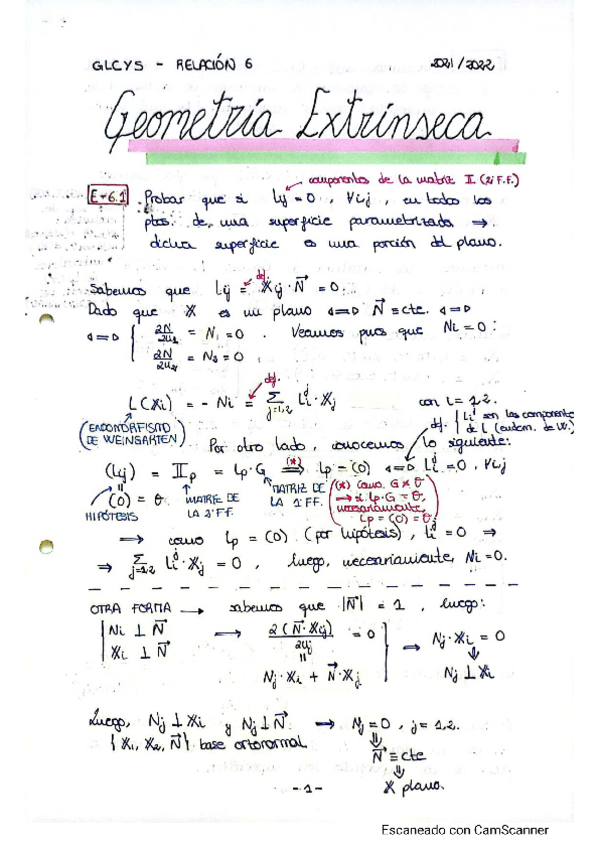 GLCYS - RELACIÓN 6 2021/2022
Geometría Extrínseca
componentes de la matriz II (2ª F.F.)
E-6.1 Probar que si Lij = 0, ∀i,j, en todos los
ptos. de una superficie parametrizada →
dicha superficie es una porción del plano.
Sabemos que Lij = Xij · N⃗ = 0.
def.
Dado que X es un plano ⇔ N⃗ ≡ cte. ⇔
⇔ { ∂N/∂u₁ = N₁ = 0 . Veamos pues que Ni = 0:
∂N/∂u₂ = N₂ = 0 .
def.
L(Xi) = - Ni = Σ j=1,2 Li^j · Xj con i = 1,2.
(ENDOMORFISMO DE WEINGARTEN)
def. | Li^j son las componentes
de L (endom. de W.)
Por otro lado, conocemos lo siguiente:
(Lij) = IIp = Lp · G ⇒(*) Lp = (0) ⇔ Li^j = 0, ∀i,j
(0) = θ
HIPÓTESIS
MATRIZ DE
LA 2ª FF.
MATRIZ DE
LA 1ª FF.
(*) Como G ≠ θ
→ si Lp·G = θ,
necesariamente,
Lp = (0) = θ.
→ como Lp = (0) (por hipótesis), Li^j = 0 ⇒
⇒ Σ j=1,2 Li^j · Xj = 0 , luego, necesariamente, Ni = 0.
OTRA FORMA → sabemos que |N⃗| = 1 , luego:
| Ni ⊥ N⃗ → ∂(N⃗·Xi)/∂uj = 0 → Nj · Xi = 0
| Xi ⊥ N⃗
Nj · Xi + N⃗ · Xij
Nj ⊥ Xi
Luego, Nj ⊥ Xi y Nj ⊥ N⃗ → Nj = 0 , j = 1,2.
{X₁, X₂, N⃗} base ortonormal
N⃗ ≡ cte
X plano.
- 1 -
Escaneado con CamScanner